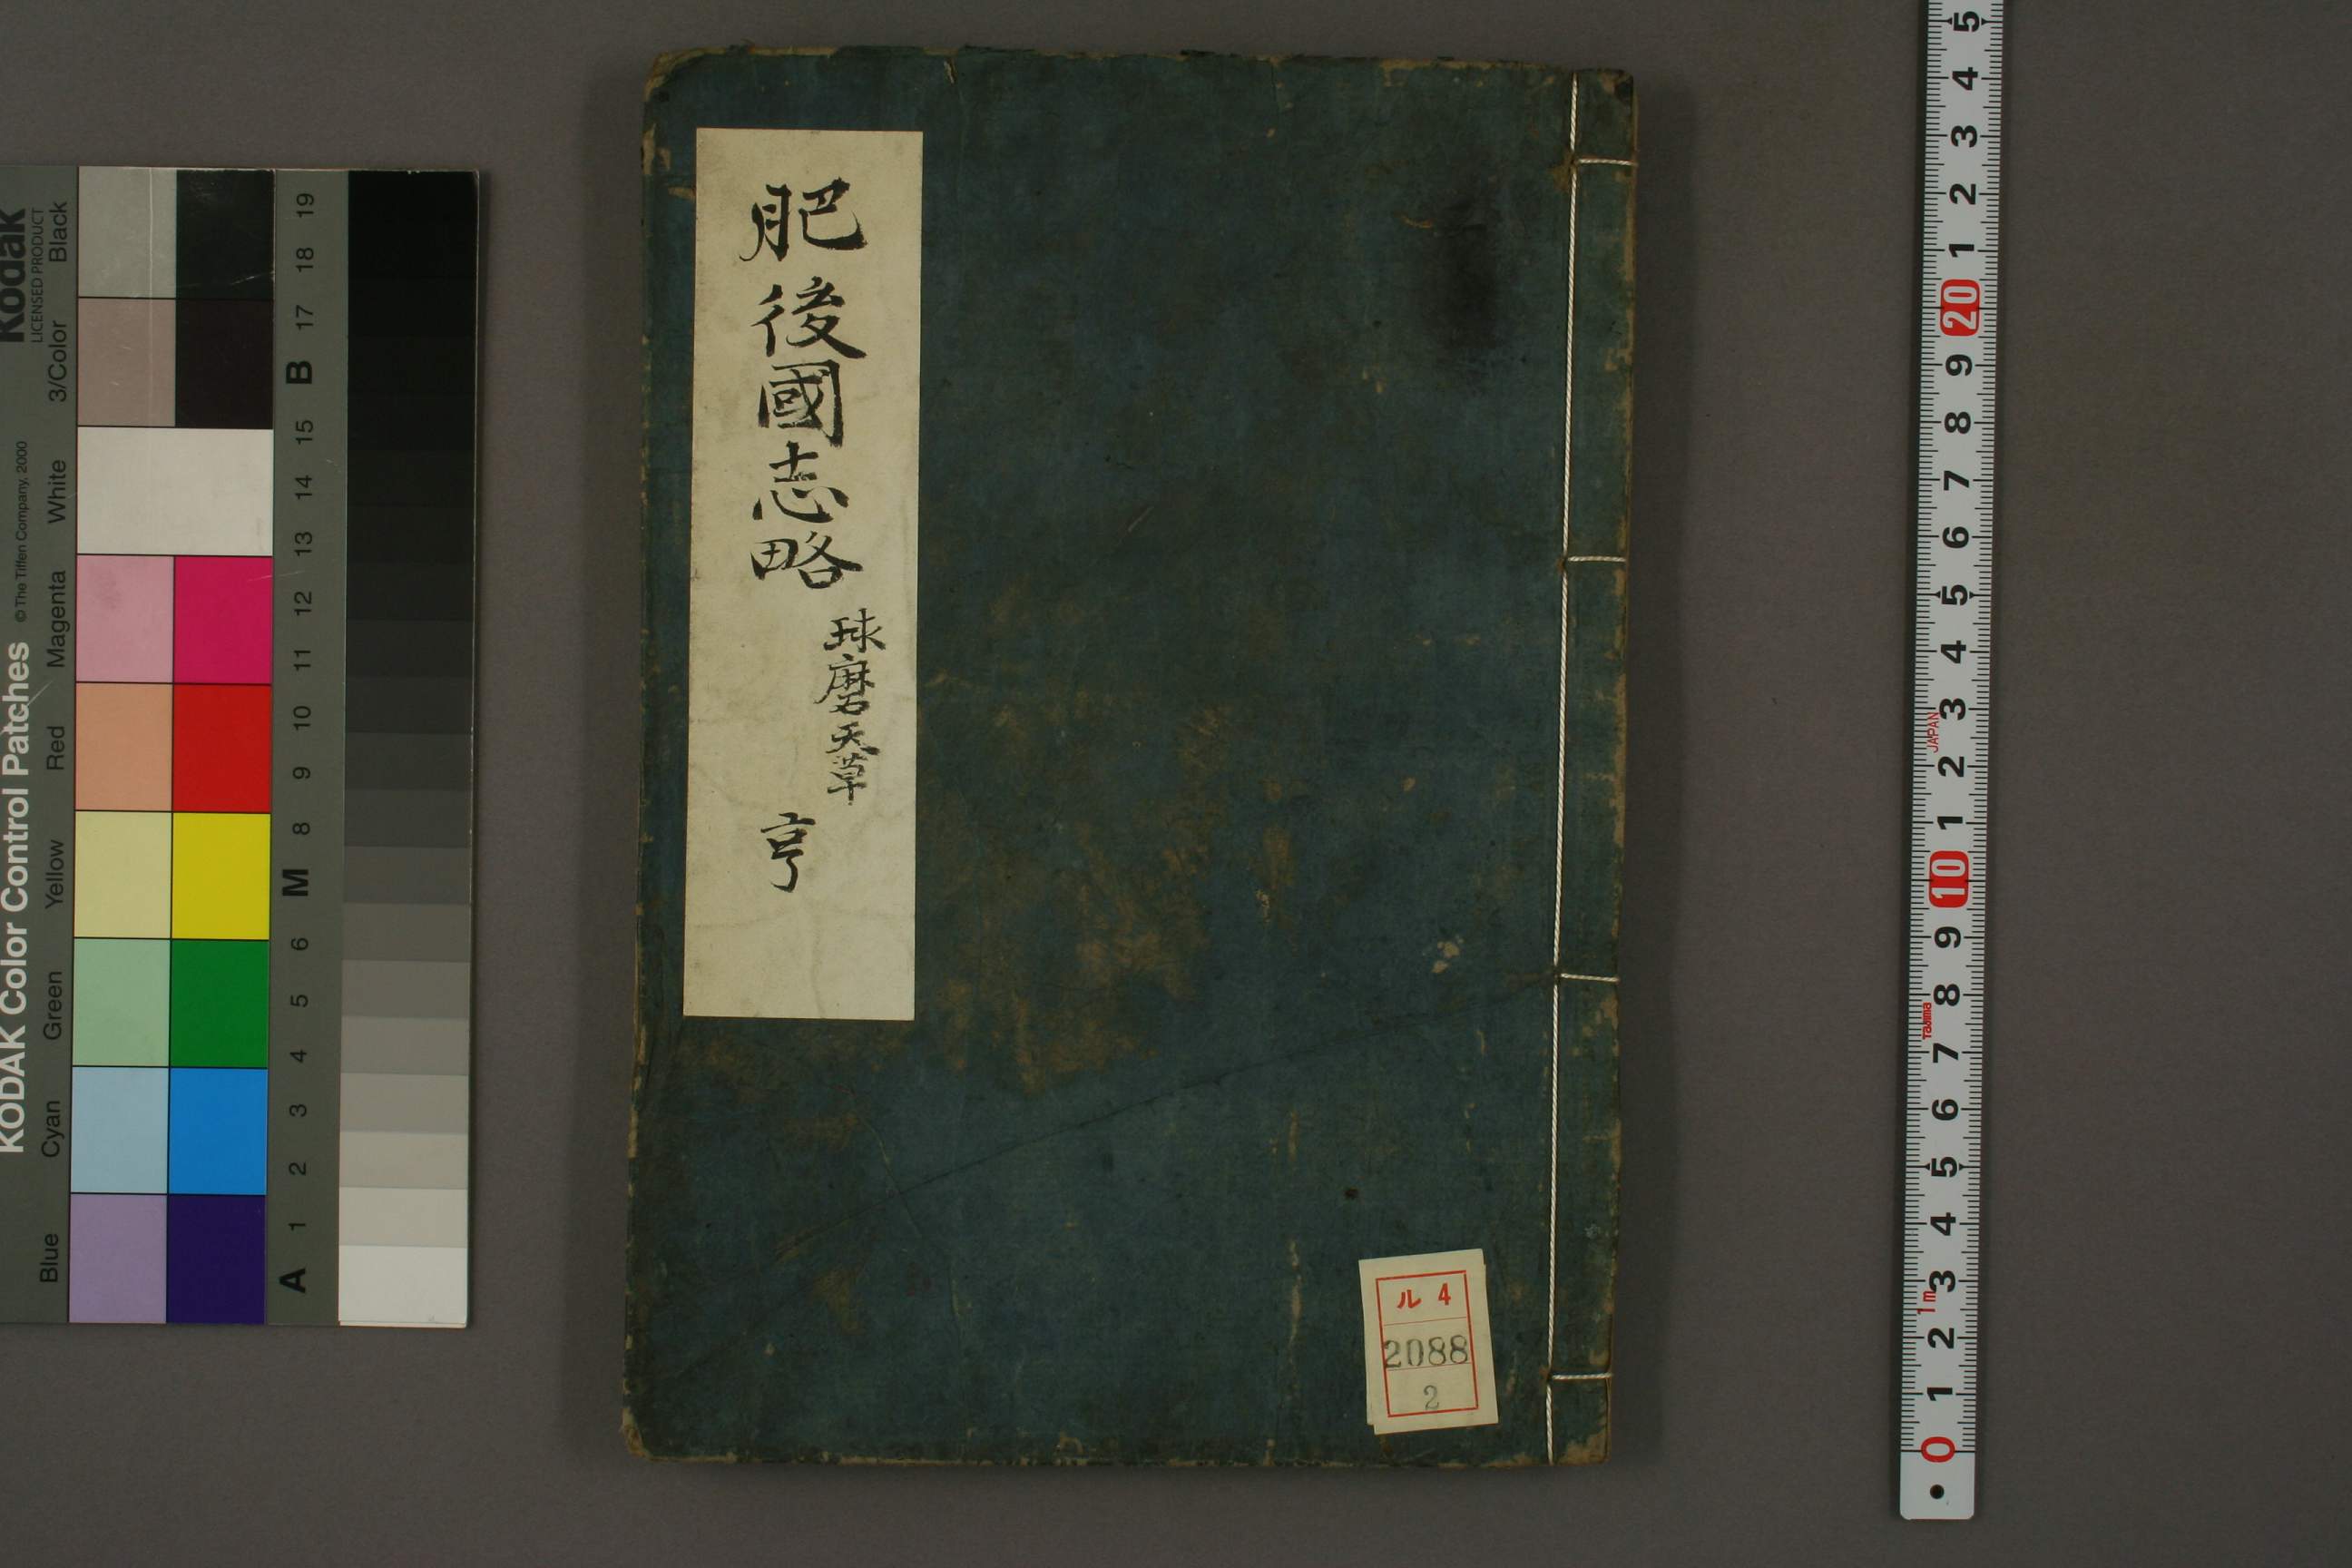 肥後國志略
球磨天草
亨
ル 4
2088
2
Kodak
LICENSED PRODUCT
KODAK Color Control Patches
© The Tiffen Company, 2000
Blue Cyan Green Yellow Red Magenta White 3/Color Black
A 1 2 3 4 5 6 M 8 9 10 11 12 13 14 15 B 17 18 19
0 1 2 1m 3 4 5 6 7 8 9 10 1 2 3 4 5 6 7 8 9 20 1 2 3 4 5
Tajima
JAPAN